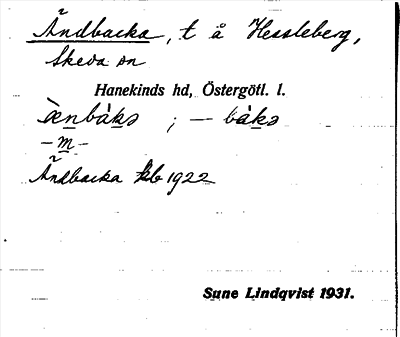 Ändbacka, t å Hessleberg,
Skeda sn
Hanekinds hd, Östergötl. l.
ä̀nbàkə ; – bàkə
– m –
Ändbacka kb 1922
Sune Lindqvist 1931.